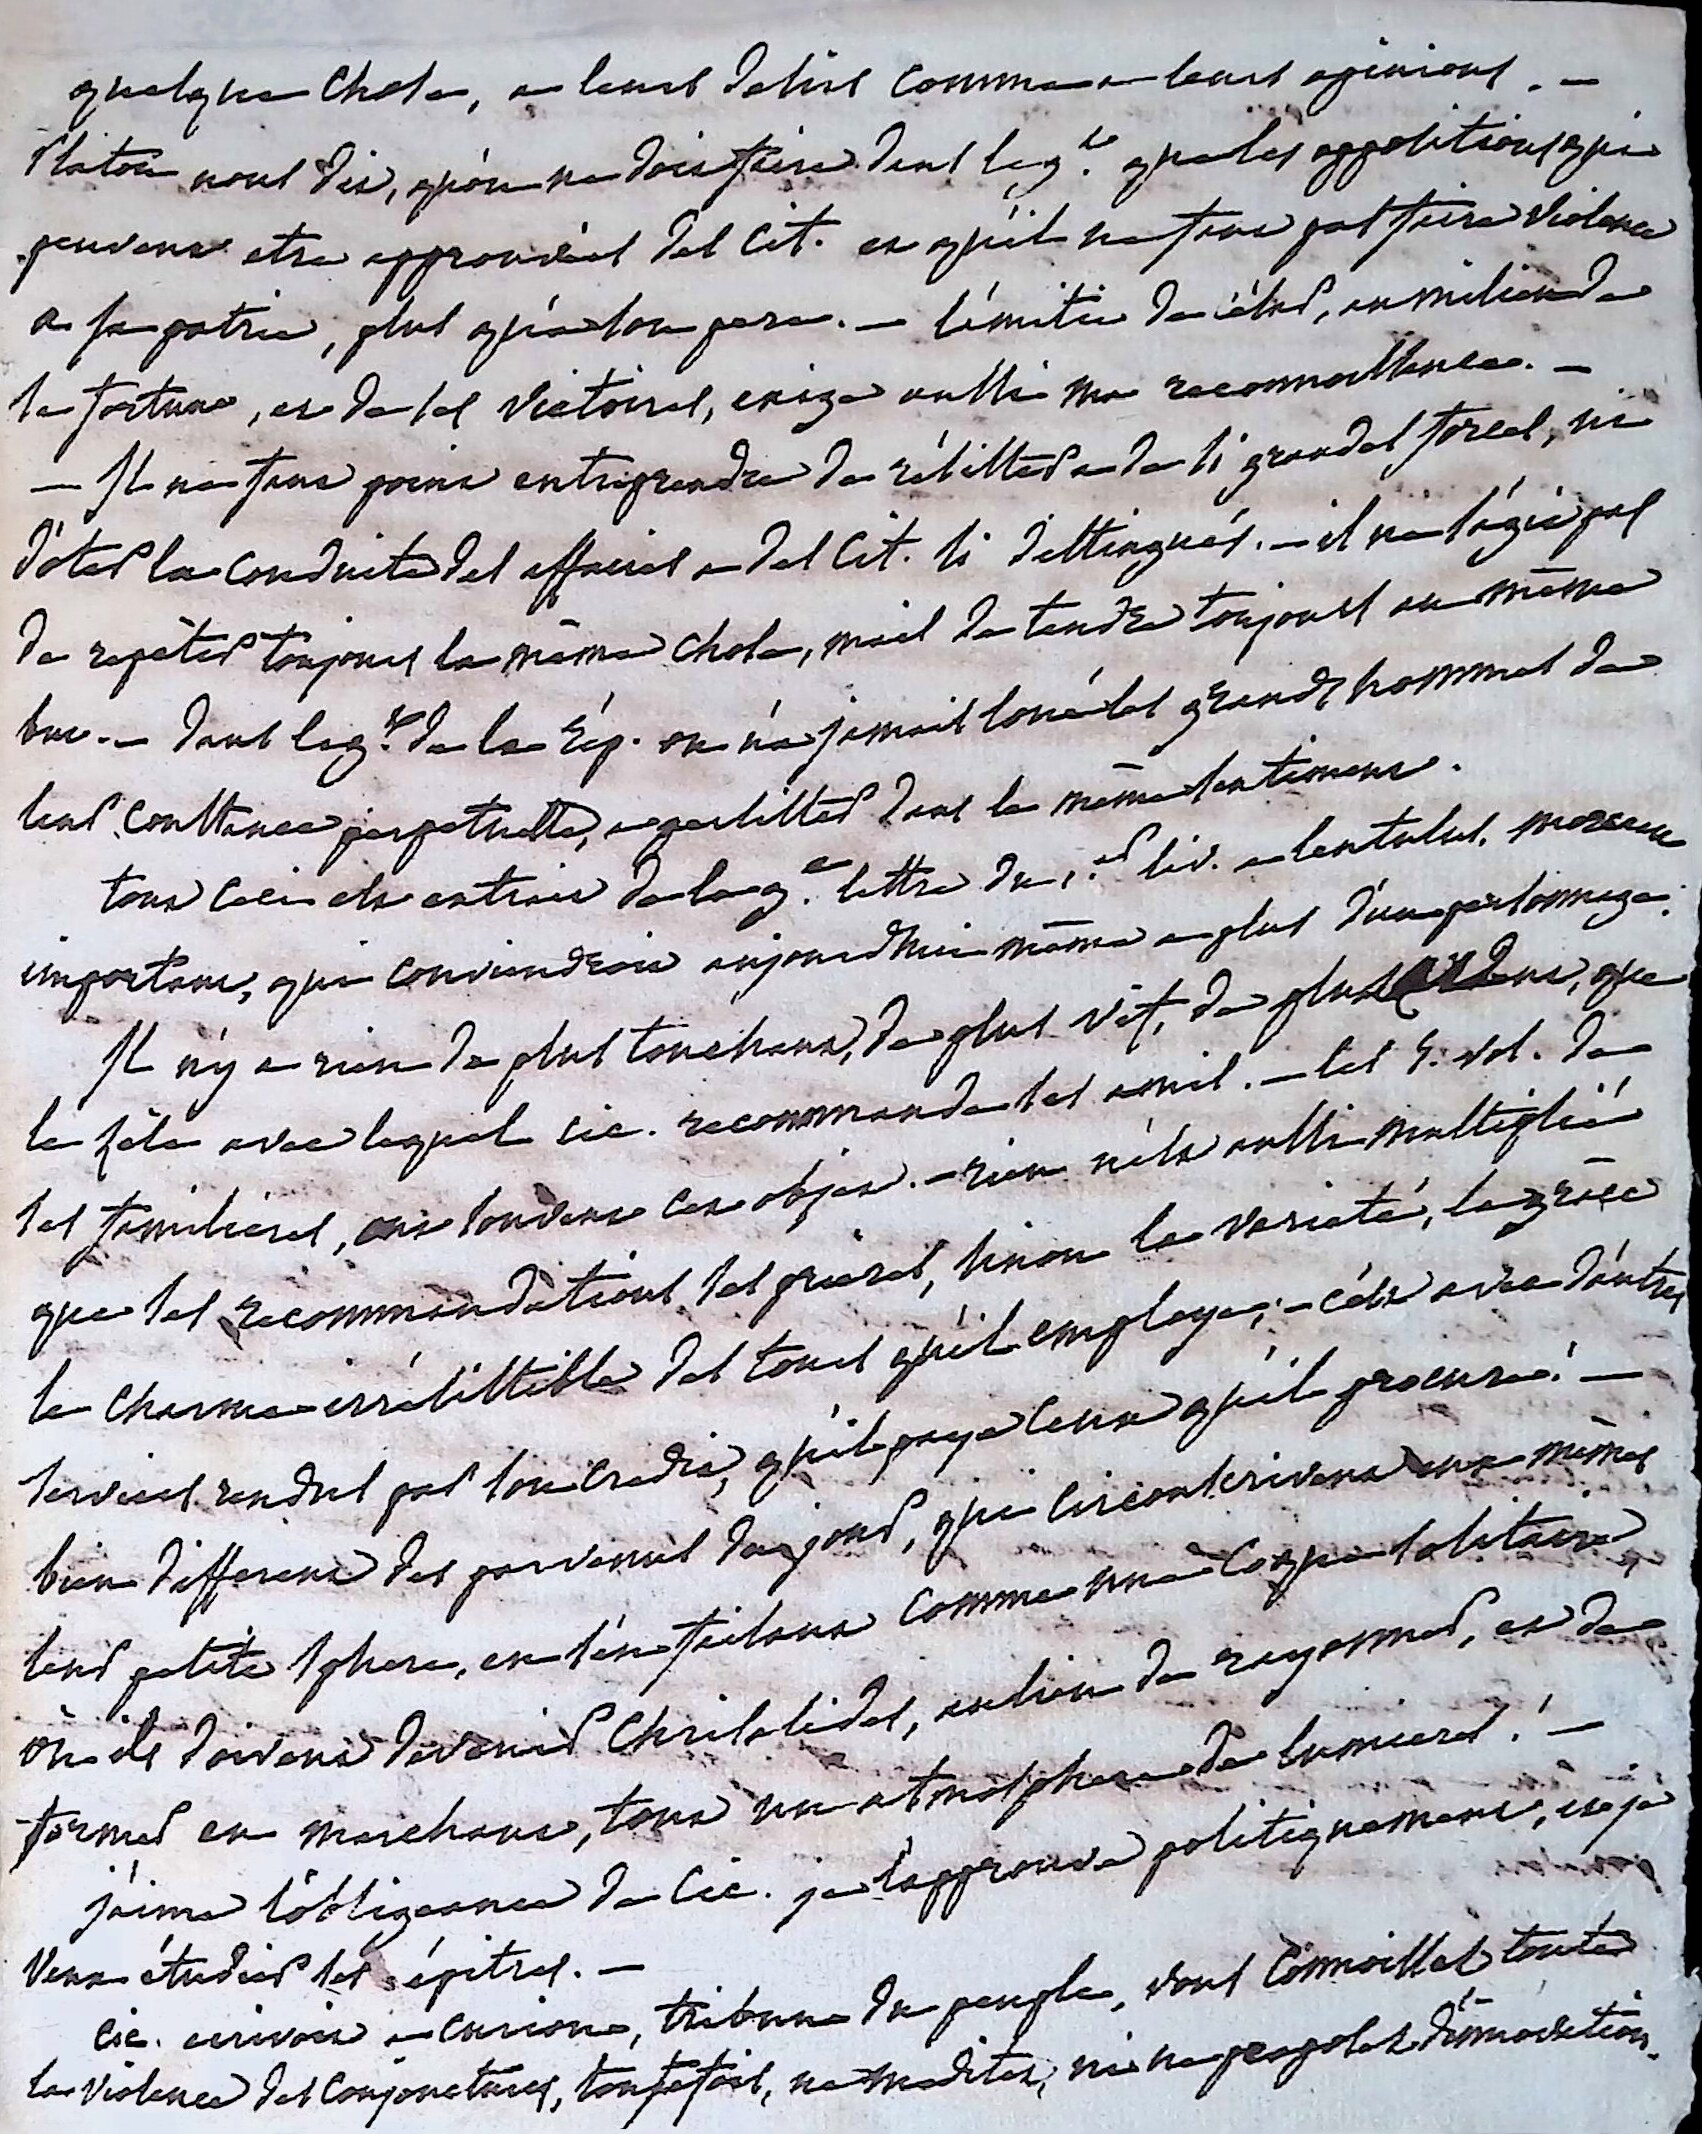 quelque chose, a leurs desirs comme a leurs opinions. —
Platon nous dit, qu'on ne doit faire dans le g.t que les oppositions qui
peuvent etre approuvées des cit. et qu'il ne faut pas faire violence
a sa patrie, plus qu'a son pere. — l'amitié de César, au milieu de
sa fortune, et de ses victoires, exige aussi ma reconnaissance. —
— Il ne faut point entreprendre de résister a de si grandes forces, ni
d'oter la conduite des affaires a des cit. si distingués. — il ne s'agit pas
de repéter toujours la même chose, mais de tendre toujours au même
but. — dans le g.t de la rép. on n'a jamais loué les grands hommes de
leur constance perpetuelle, a persister dans le même sentiment.
tout ceci est extrait de la 9.e lettre du 1.er liv. a lentulus. morceau
important, qui conviendroit aujourdhui même a plus d'un personnage.
Il n'y a rien de plus touchant, de plus vif, de plus ardent, que
le zèle avec lequel cic. recommande ses amis. — les 5. vol. de
ses familieres, ont souvent cet objet. — rien n'est aussi multiplié
que ses recommandations ses prieres, sinon la varieté, la grâce
le charme irrésistible des tours qu'il employe; — c'est avec d'autres
services rendus par son credit, qu'il paye ceux qu'il procure! —
bien different des parvenus du jour, qui circonscrivent eux mêmes
leur petite sphere, en s'en faisant comme une coque solitaire
où ils doivent devenir chrisalides, au lieu de rayonner, et de
former en marchant, tout un atmosphere de lumieres! —
j'aime l'obligeance de cic. je l'approuve politiquement, et je
veux étudier ses épitres. —
cic. ecrivoit a curion, tribun du peuple, vous connoissez toute
la violence des conjonctures, toutefois, ne meditez, ni ne proposez d'innovation.